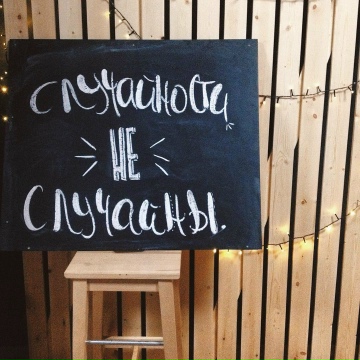 Случайности
НЕ
Случайны.